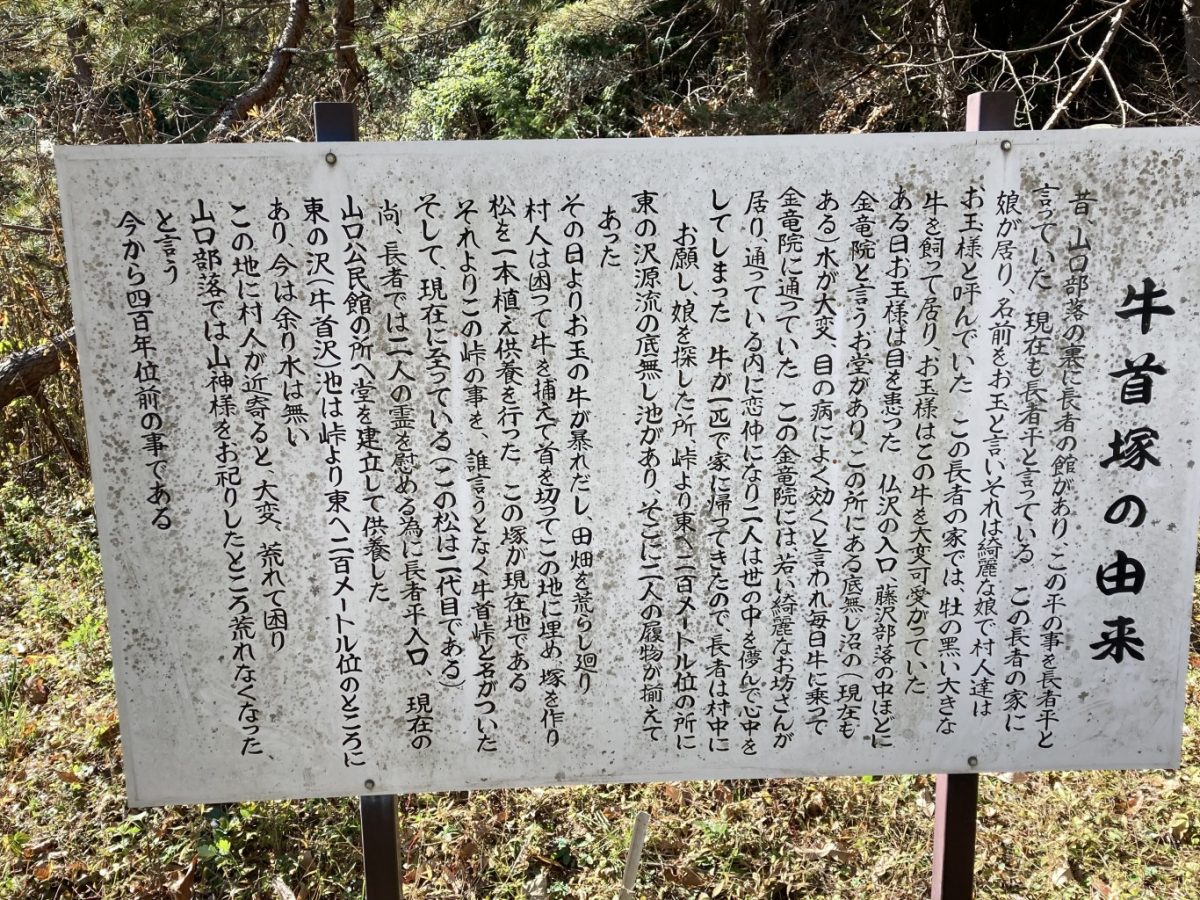 牛首塚の由来
昔山口部落の裏に長者の館があり、この平の事を長者平と
言っていた 現在も長者平と言っている この長者の家に
娘が居り、名前をお玉と言いそれは綺麗な娘で村人達は
お玉様と呼んでいた この長者の家では、牡の黒い大きな
牛を飼って居り、お玉様はこの牛を大変可愛がっていた
ある日お玉様は目を患った 仏沢の入口 藤沢部落の中ほどに
金竜院と言うお堂があり、この所にある底無し沼の(現在も
ある)水が大変、目の病によく効くと言われ毎日牛に乗って
金竜院に通っていた この金竜院には若い綺麗なお坊さんが
居り、通っている内に恋仲になり二人は世の中を儚んで心中を
してしまった 牛が一匹で家に帰ってきたので、長者は村中に
お願し、娘を探した所、峠より東へ二百メートル位の所に
東の沢源流の底無し池があり そこに二人の履物が揃えて
あった
その日よりお玉の牛が暴れだし、田畑を荒らし廻り
村人は困って牛を捕えて首を切ってこの地に埋め 塚を作り
松を一本植え供養を行った この塚が現在地である
それよりこの峠の事を、誰言うとなく牛首峠と名がついた
そして、現在に至っている(この松は二代目である)
尚、長者では二人の霊を慰める為に長者平入口、現在の
山口公民館の所へ堂を建立して供養した
東の沢(牛首沢)池は峠より東へ二百メートル位のところに
あり、今は余り水は無い
この地に村人が近寄ると、大変、荒れて困り
山口部落では山神様をお祀りしたところ荒れなくなった
と言う
今から四百年、位前の事である